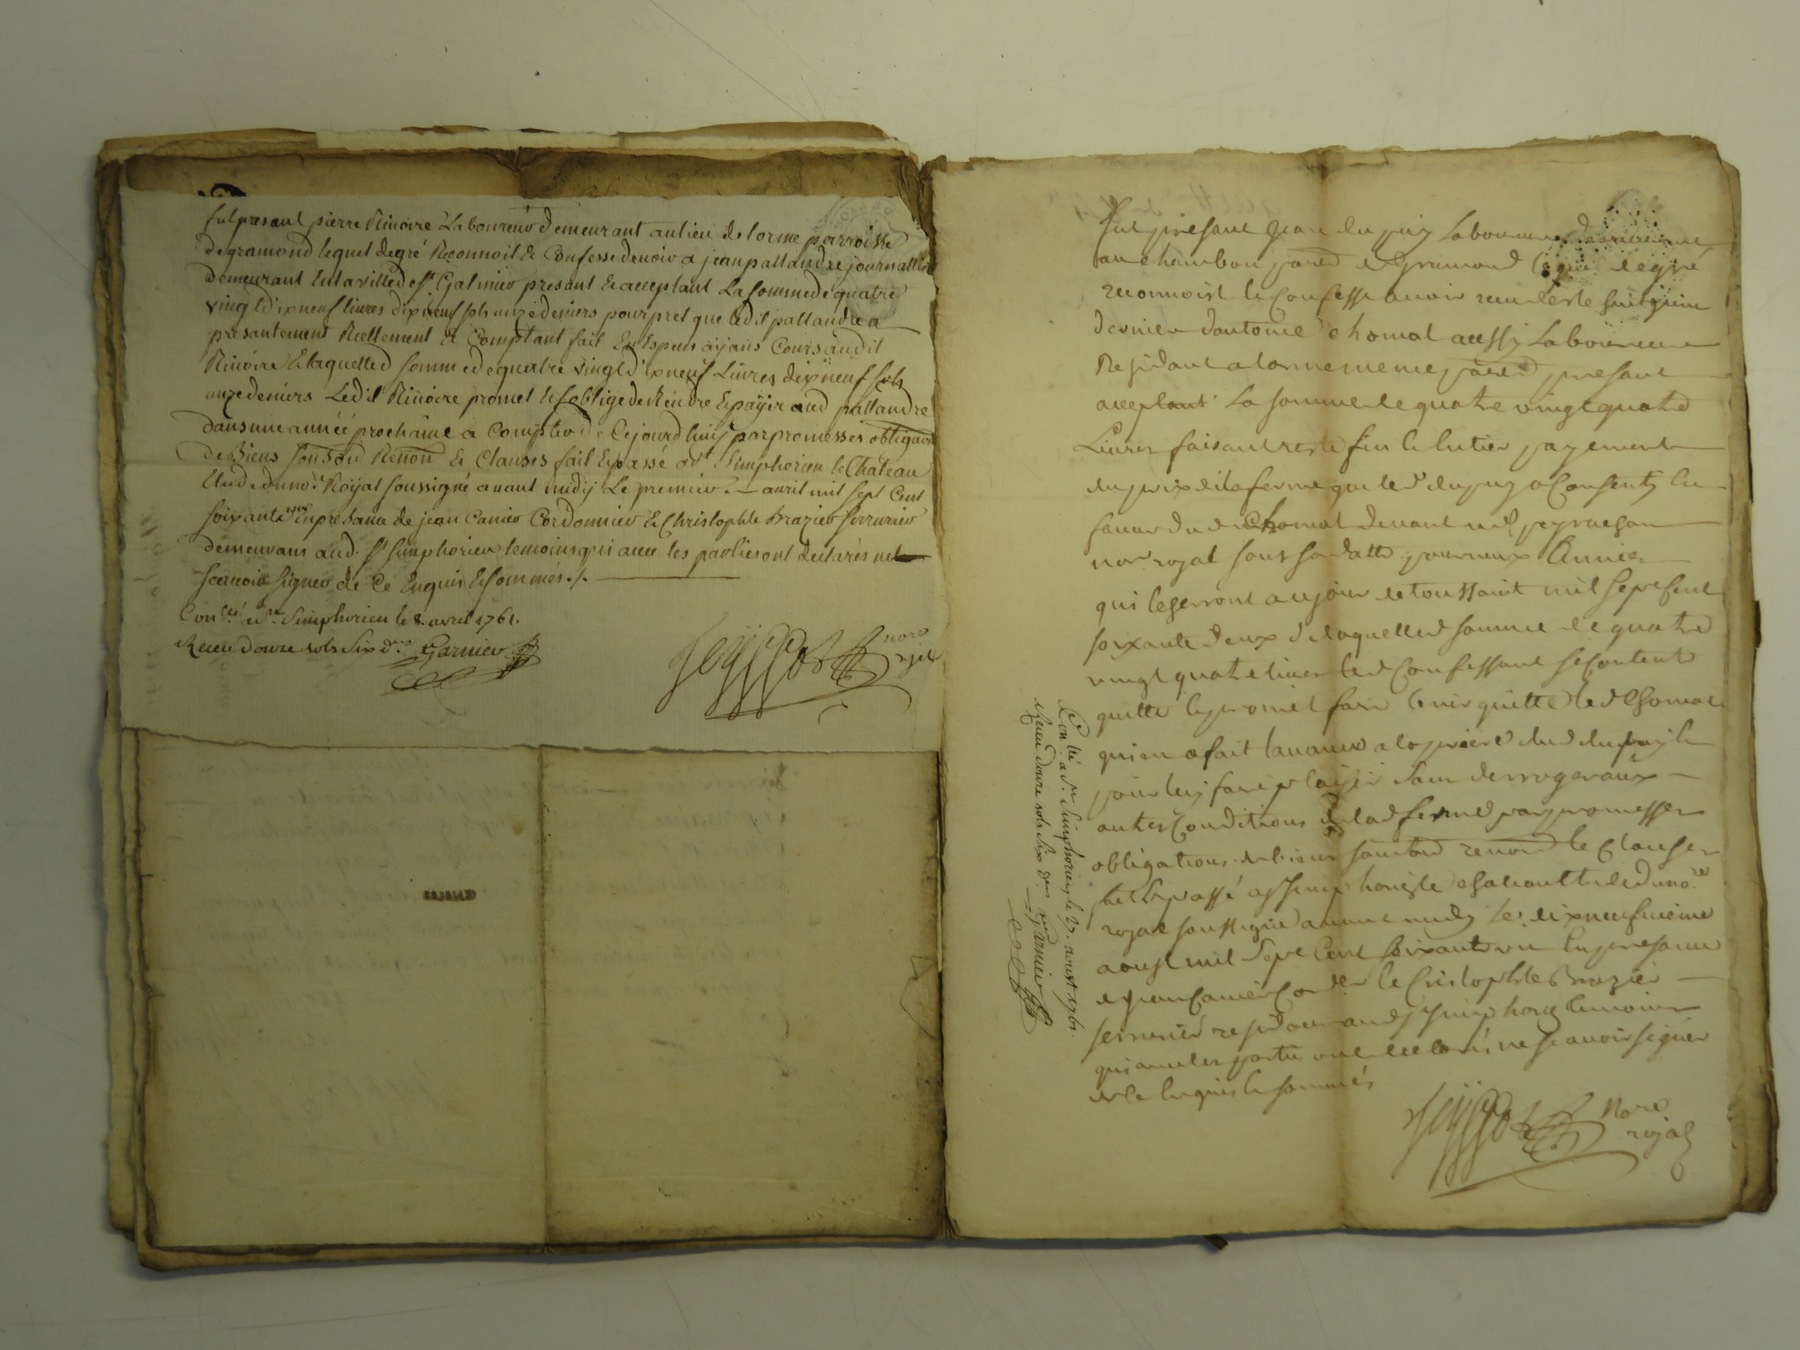 fut present pierre Rivoire Laboureur demeurant au lieu de lorme parroisse
de gramond lequel de gré Reconnoit & Confesse devoir a jean pallandre journallier
demeurant en la ville de st Galmier present & acceptant La somme de quatre
vingt dixneuf livres dixneuf sols unze deniers pour pret que ledit pallandre a
presantement Reellement & Comptant fait En Especes ayans Cours audit
Rivoire & laquelled somme de quatre vingt dixneuf Livres dixneuf sols
unze deniers Ledit Rivoire promet & soblige de Rendre & payer aud pallandre
dans une année prochaine a Compter de Cejourdhuij par promesses obligaon
de Biens soub Renon & Clauses fait & passé a st Simphorien le Château
Etude du nore Royal soussigné avant midy Le premier avril mil sept Cent
soixante un En presance de jean Canier Cordonnier & Christophle Brazier serrurier
demeurans aud. st simphorien temoins qui avec les parties ont declarés ne
scavoir signer de Ce Enquis & sommés ./.
Conllé a st Simphorien le 8. avril 1761.
Receu douze sols six drs Garnier
nore
royal
fut presant Jean dupuy laboureur
au chambon parred de Gramond lequel de gré
reconnoist & Confesse avoir receu
dernier dantoine chomat aussy Laboureur
Residant a lorme meme parred presant
acceptant La somme de quatre vingt quatre
Livres faisant reste payement
du prix de la ferme que led dupuy a Consenty En
faveur dud chomat devant me
nore royal sous sa datte pour neux Années
qui legerront au jour de toussaint mil sept Cent
soixante deux de laquelled somme de quatre
vingt quatre livres led Confessant se Contente
quitte & promet faire tenir quitte led Chomat
qui en a fait lavance a la priere dud dupuy &
pour luy faire plaisir sans derroger aux
autres Conditions de lad ferme par promesses
obligations de biens renon & Clauses
fait & passé a st simphorien le chateau Etude du nore
royal soussigné avant midy le dixneufvieme
aoust mil sept Cent soixante un En presance
de jean Canier Cordr & Christophle Brazier
serrurier residant aud st simphorien temoins
qui avec les parties ont declarés ne scavoir signer
de ce Enquis & sommés
nore
royal
Conllé a st Simphorien le 27. aoust 1761.
Receu douze sols six drs Garnier